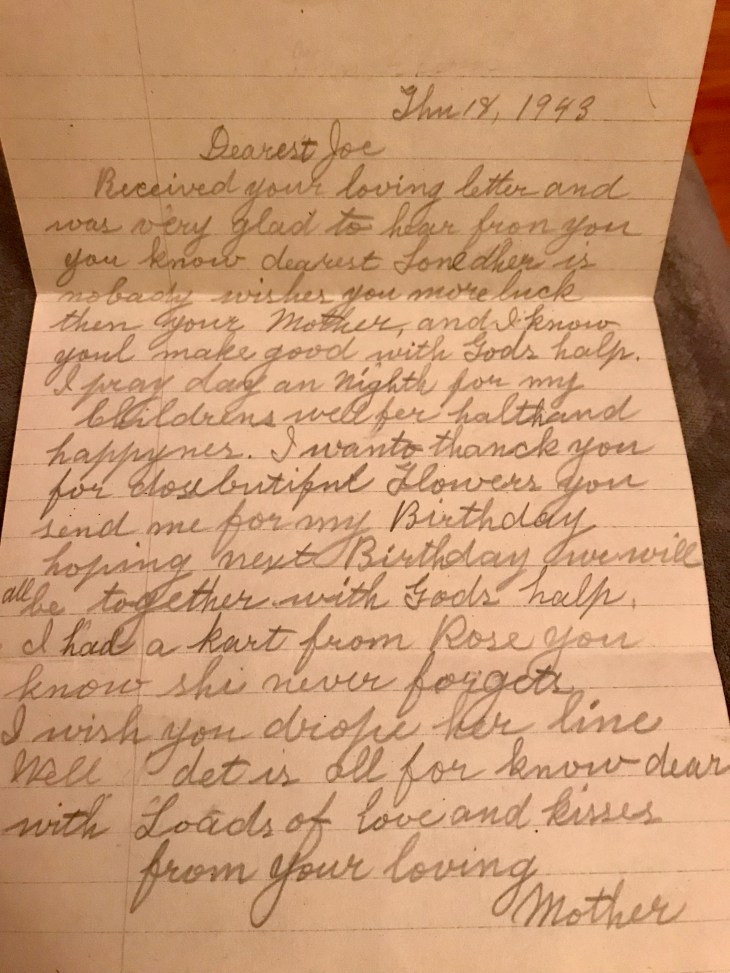 Thu 18, 1943
Dearest Joe
Received your loving letter and
was very glad to hear fron you
you know dearest is
nobady wishes you more luck
then your Mother, and I know
youl make good with Gods halp.
I pray day an nighth for my
Childrens wellfer halth and
happynes. I wanto thanck you
for dose butiful Flowers you
send me for my Birthday
hoping next Birthday we will
all be together with Gods halp.
I had a kart from Rose you
know shi never forgets
I wish you drope her line
Well det is all for know dear
with Loads of love and kisses
from your loving
Mother